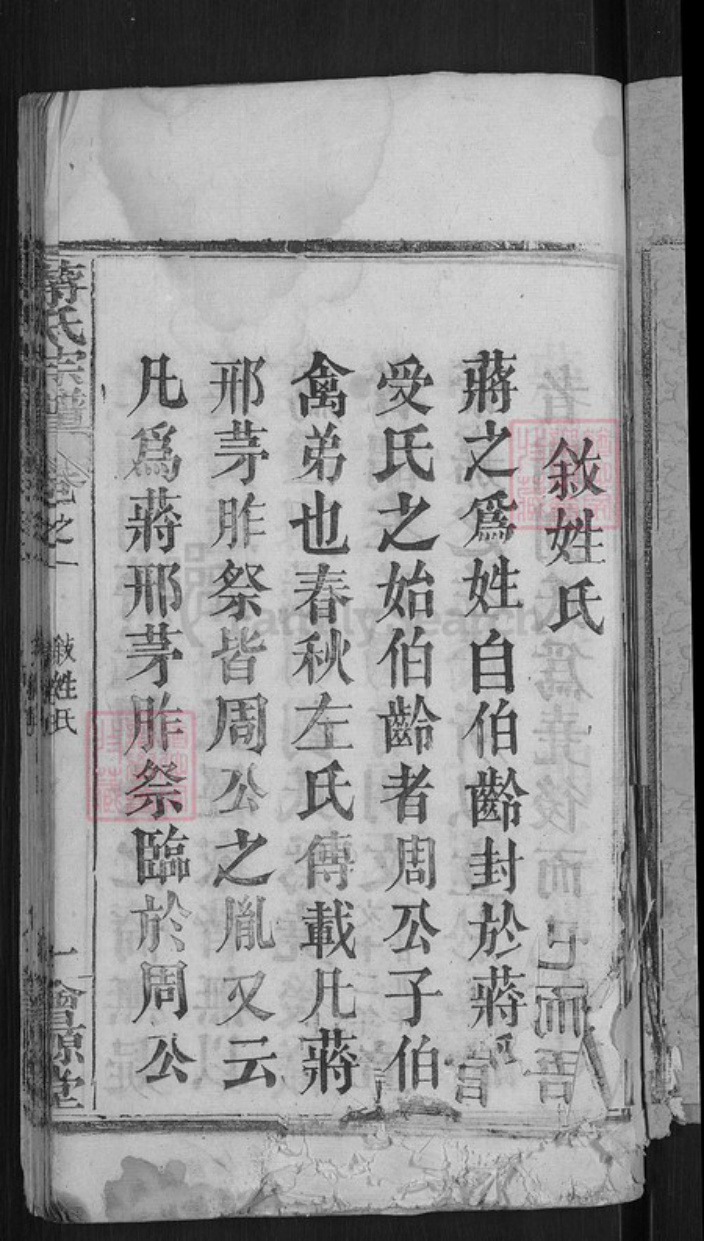 敘姓氏
蔣之爲姓自伯齡封於蔣
受氏之始伯齡者周公子伯
禽弟也春秋左氏傳載凡蔣
邢茅胙祭皆周公之胤又云
凡爲蔣邢茅胙祭臨於周公
蔣氏宗譜
卷之一
敘姓氏
一